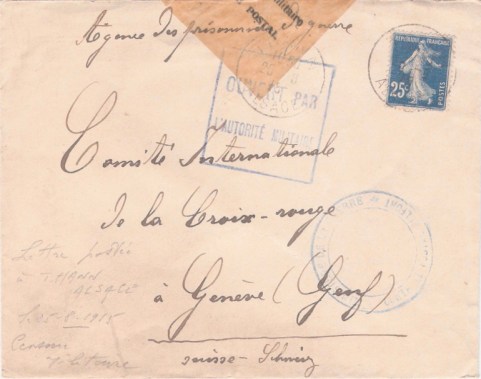 Agence des prisonniers de guerre
POSTAL
RÉPUBLIQUE FRANÇAISE
25c
POSTES
OUVERT PAR
L'AUTORITÉ MILITAIRE
ALSACE
Comité International
de la Croix-rouge
à Genève (Genf)
suisse-Schweiz
Lettre postée
à THANN
ALSACE
1915
Censure
Militaire